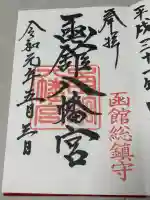 平成三十一
奉拝
函館八幡宮
函館総鎮守
令和元年五月三日